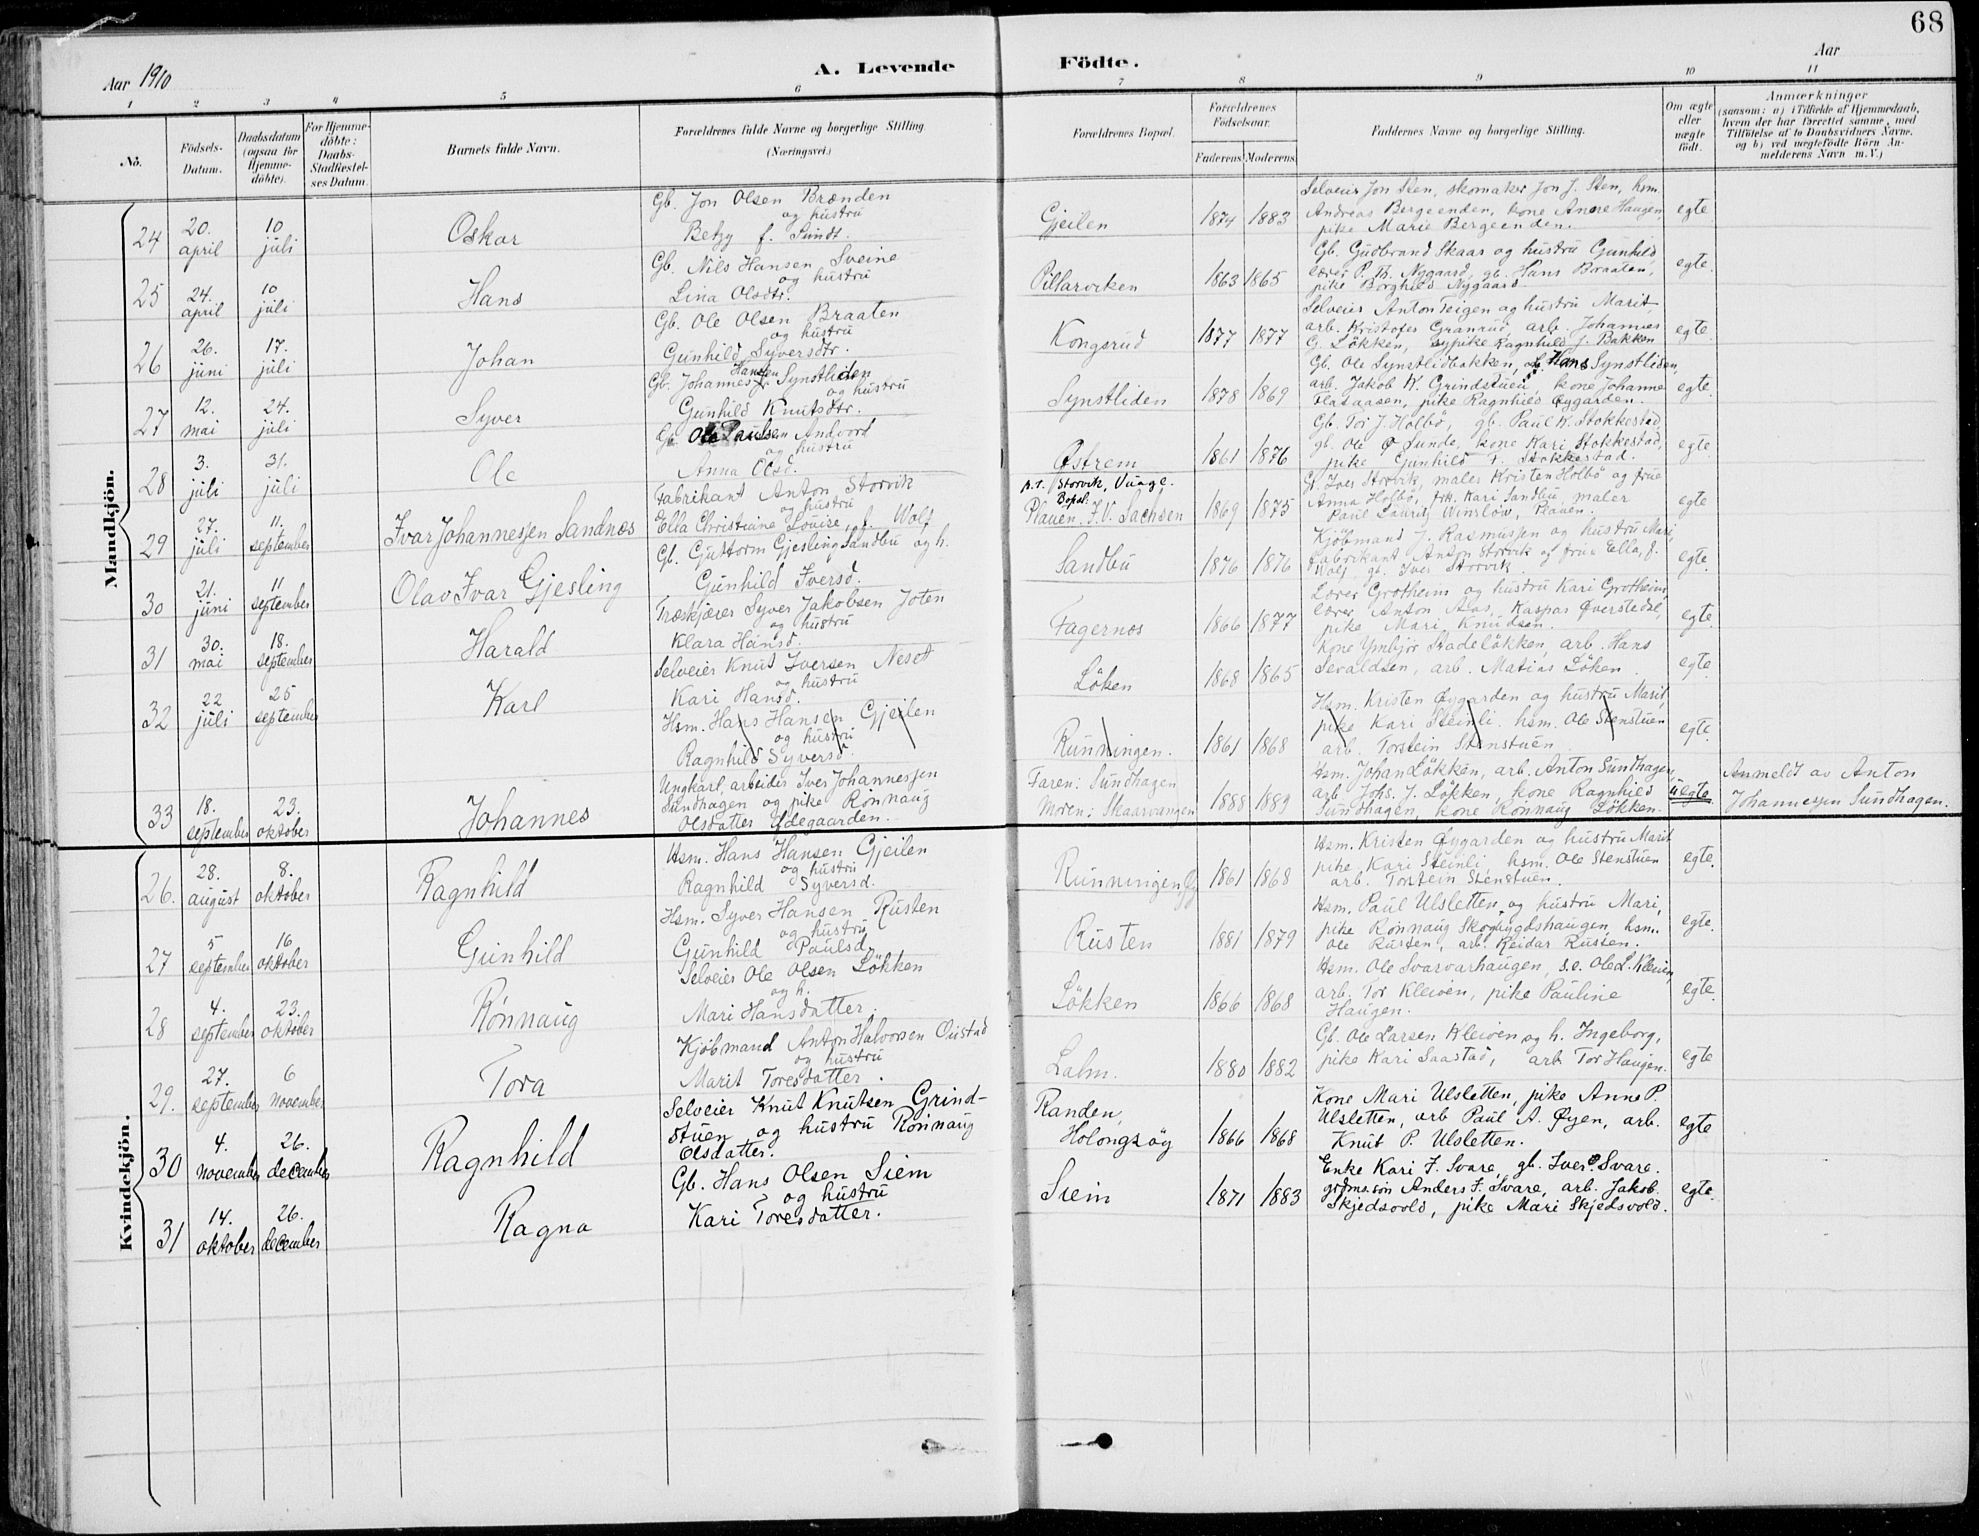 68
Aar 1910
A. Levende Födte.
Aar
1 2 3 4 5 6 7 8 9 10 11
No.
Födsels-Datum.
Daabsdatum (ogsaa for Hjemme-döbte).
For Hjemme-döbte: Daabs-Stadfæstel-ses Datum.
Barnets fulde Navn.
Forældrenes fulde Navne og borgerlige Stilling. (Næringsvei.)
Forældrenes Bopæl.
Forældrenes Födselsaar.
Faderens. Moderens.
Faddernes Navne og borgerlige Stilling.
Om ægte eller uægte födt.
Anmærkninger
(saasom: a) i Tilfælde af Hjemmedaab,
hvem der har forrettet samme, med
Tilföielse af to Daabsvidners Navne.
og b) ved uægtefödte Börn An-
melderens Navn m. V.)
Mandkjön.
24 20. april 10 juli Oskar
Gb. Jon Olsen Brænden
og hustru
Betzy f. Sundt.
Gjeilen 1874 1883
Selveier Jon Sten, skomaker Jon J. Sten, hsm.
Andreas Bergeenden, kone Anne Haugen
pike Marie Bergeenden.
egte
25 24. april 10 juli Hans
Gb. Nils Hansen Sveine
og hustru
Lina Olsdtr.
Pillarviken 1863 1865
Gb. Gudbrand Skaar og hustru Gunhild,
lærer P. Th. Nygaard, gb. Hans Braaten,
pike Borghild Nygaard.
egte.
26 26. juni 17. juli Johan
Gb. Ole Olsen Braaten
og hustru
Gunhild Syversdtr.
Kongsrud 1877 1877
Selveier Anton Teigen og hustru Marit,
arb. Kristofer Granrud, arb. Johannes
G. Løkken, sypike Ragnhild J. Bakken
egte
27 12. mai 24. juli Syver
Hansen
Gb. Johannes Synstlien
og hustru
Gunhild Knutsdtr.
Synstliden 1878 1869
Gb. Ole Synstlidbakken, Hans Synstliden,
arb. Jakob K. Grindstuen, kone Johanne
Flataasen, pike Ragnhild Øygarden.
egte.
28 3. juli 31. juli Ole
Gb. Ole Paulsen Andvord
og hustru
Anna Olsd.
Østrem 1861 1876
Gb. Tor J. Holbö, gb. Paul K. Stokkestad,
gb. Ole O. Sunde, kone Kari Stokkestad,
pike Gunhild T. Stokkestad.
egte.
29 27. juli 11. september Ivar Johannessen Sandnes
Fabrikant Anton Storvik
og hustru
Ella Christiane Louise, f. Wolf
p.t. Storvik, Vaage.
Bopæl:
Plauen. I.V. Sachsen 1869 1875
Gb. Iver Storvik, maler Kristen Holbö og frue
Anna Holbö, frk. Kari Sandbu, maler
Paul Lauritz Winslöw, Plauen.
egte
30 21. juni 11 september Olav Ivar Gjesling
Gb. Guttorm Gjesling Sandbu og h.
Gunhild Iversd.
Sandbu 1876 1876
Kjöbmand J. Rasmussen og hustru Mari,
fabrikant Anton Storvik og frue Ella, f.
Wolf, gb. Iver Storvik.
egte.
31 30. mai 18. september Harald
Træskjærer Syver Jakobsen Joten
og hustru
Klara Hansd.
Fagernes 1866 1877
Lærer Grotheim og hustru Kari Grotheim,
lærer Anton Aas, Kaspar Øverstedal,
pike Mari Knudsen.
egte.
32 22 juli 25 september Karl
Selveier Knut Iversen Neset
og hustru
Kari Hansd.
Löken 1868 1865
Kone Ymbjör Stadelökken, arb. Hans
Sevaldsen, arb. Matias Löken.
egte.
Hsm. Hans Hansen Gjeilen
og hustru
Ragnhild Syversd.
Runningen. 1861 1868
Hsm. Kristen Øygarden og hustru Marit,
pike Kari Steinli. hsm. Ole Stenstuen
arb. Torstein Stenstuen.
egte.
33 18. september 23. oktober Johannes
Ungkarl, arbeider Iver Johannessen
Sundhagen og pike Rönnaug
Olsdatter Ødegaarden.
Faren: Sundhagen
Moren: Skaarvangen 1888 1889
Hsm. Johan Løkken, arb. Anton Sundhagen,
arb. Johs. J. Løkken, kone Ragnhild
Sundhagen, kone Rönnaug Løkken.
uegte
Anmeldt av Anton
Johannessen Sundhagen.
Kvindekjön.
26. 28. august 8. oktober Ragnhild
Hsm. Hans Hansen Gjeilen
og hustru
Ragnhild Syversd.
Runningen 1861 1868
Hsm. Kristen Øygarden og hustru Marit
pike Kari Steinli, hsm. Ole Stenstuen
arb. Torstein Stenstuen.
egte.
27 5 september 16 oktober Gunhild
Hsm. Syver Hansen Rusten
og hustru
Gunhild Paulsd.
Rusten 1881 1879
Hsm. Paul Ulsletten og hustru Mari,
pike Rönnaug Skogbygdshaugen, hsm.
Ole Rusten, arb. Reidar Rusten.
egte.
28 4. september 23. oktober Rønnaug
Selveier Ole Olsen Løkken
og h.
Mari Hansdatter.
Løkken 1866 1868
Hsm. Ole Svarvarhaugen, s.e. Ole L. Kleiven,
arb. Tor Kleiven, pike Pauline
Haugen.
egte.
29. 27. september 6 november Tora
Kjöbmand Anton Halvorsen Oustad
og hustru
Marit Toresdatter.
Lalm. 1880 1882
Gb. Ole Larsen Kleiven og h. Ingeborg,
pike Kari Saastad, arb. Tor Haugen.
egte
30 4. november 26. december Ragnhild
Selveier Knut Knutsen Grind-
stuen og hustru Rønnaug
Olsdatter.
Randen,
Holongsøy 1866 1868
Kone Mari Ulsletten, pike Anne P.
Ulsletten, arb Paul A. Øyen, arb.
Knut P. Ulsletten.
egte
31 14. oktober 26. december Ragna
Gb. Hans Olsen Siem
og hustru
Kari Toresdatter.
Siem 1871 1883
Enke Kari I. Svare, gb. Iver Svare.
grdms.søn Anders I. Svare, arb. Jakob
Skjedsvold, pike Mari Skjedsvold.
egte.